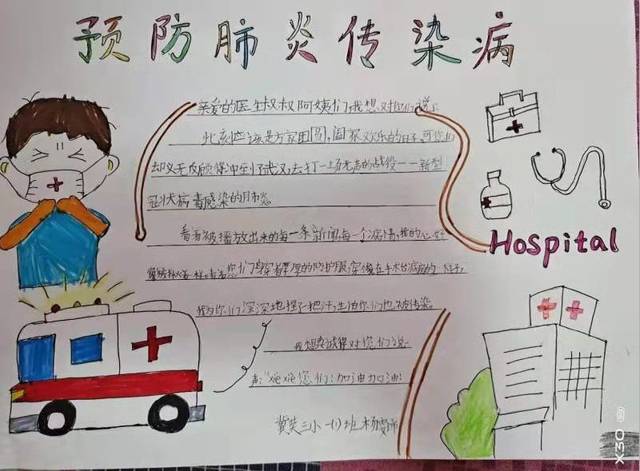 预防肺炎传染病
亲爱的医生叔叔阿姨们,我想对你们说:
此刻应该是万家团圆,阖家欢乐的日子,可你们
却义无反顾保冲到了武汉,去打一场无声的战役——新型
冠状病毒感染的肺炎
看着被播放出来的每一条新闻,每一个病情,我的心好
你们身穿着厚厚的防护服,穿梭在手术台病房的
我为你们深深地捏了一把汗,生怕你们也被传染。
我想对你们说
声:"您们:加油加油!
三小一(1)班
Hospital
X30